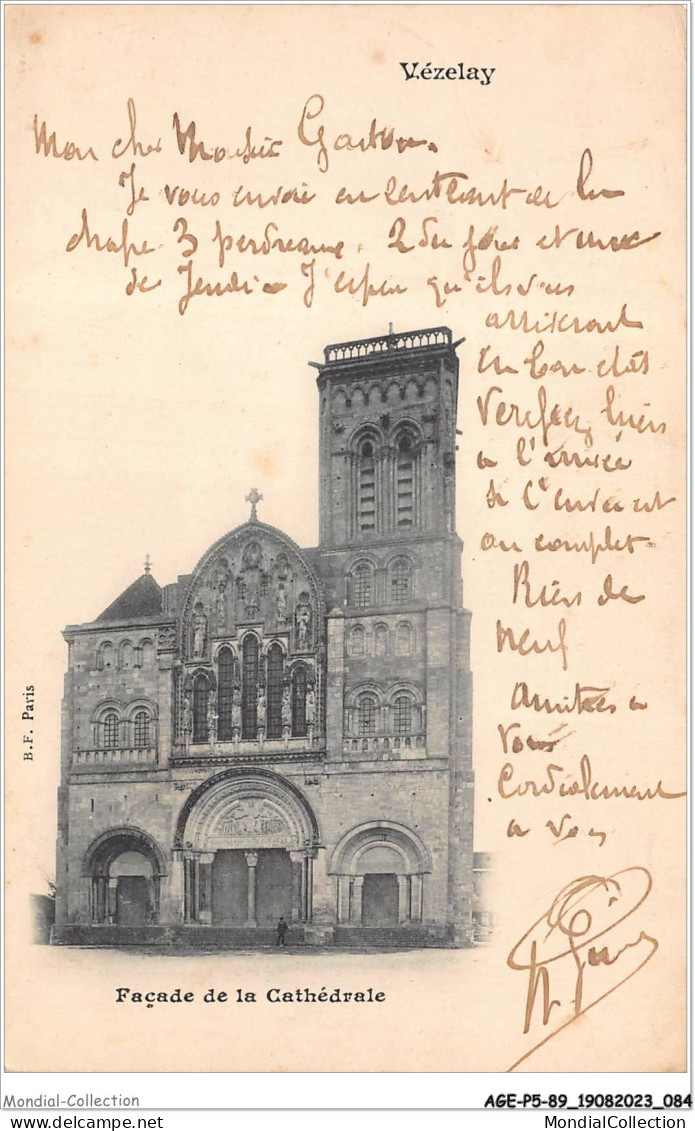 Vézelay
Mon cher Monsieur Gaston.
Je vous envoie en rentrant de la
chasse 3 perdreaux, 2 du jour et une
de Jeudi. J'espère qu'ils vous
arriveront
en bon état
Verifiez bien
a l'arrivée
si l'envoi est
au complet.
Rien de
neuf
Amitiés a
Vous
Cordialement
a vous
B.F. Paris
Façade de la Cathédrale
Mondial-Collection
AGE-P5-89_19082023_084
www.delcampe.net
MondialCollection